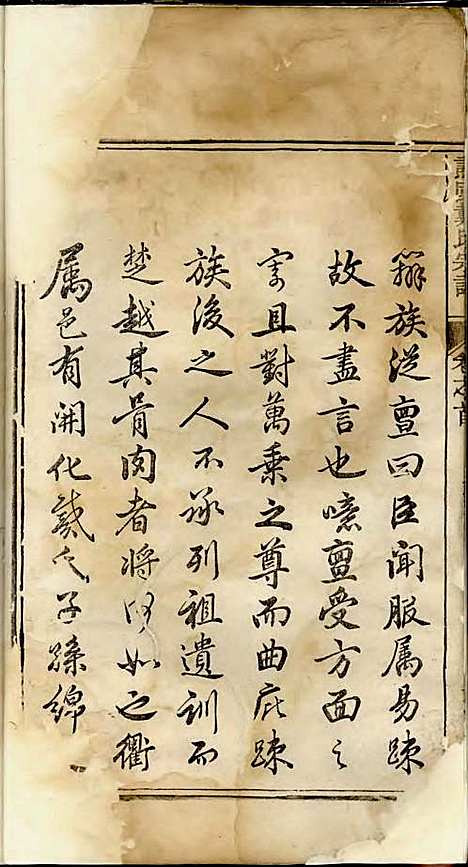 辭族従亶曰臣聞服属易踈
故不盡言也噫亶受方面之
寄且對萬乗之尊而曲庇踈
族後之人不承列祖遺訓而
楚越其骨肉者将何如之衢
属邑有開化龔氏子孫綿
龔氏宗譜
卷之首